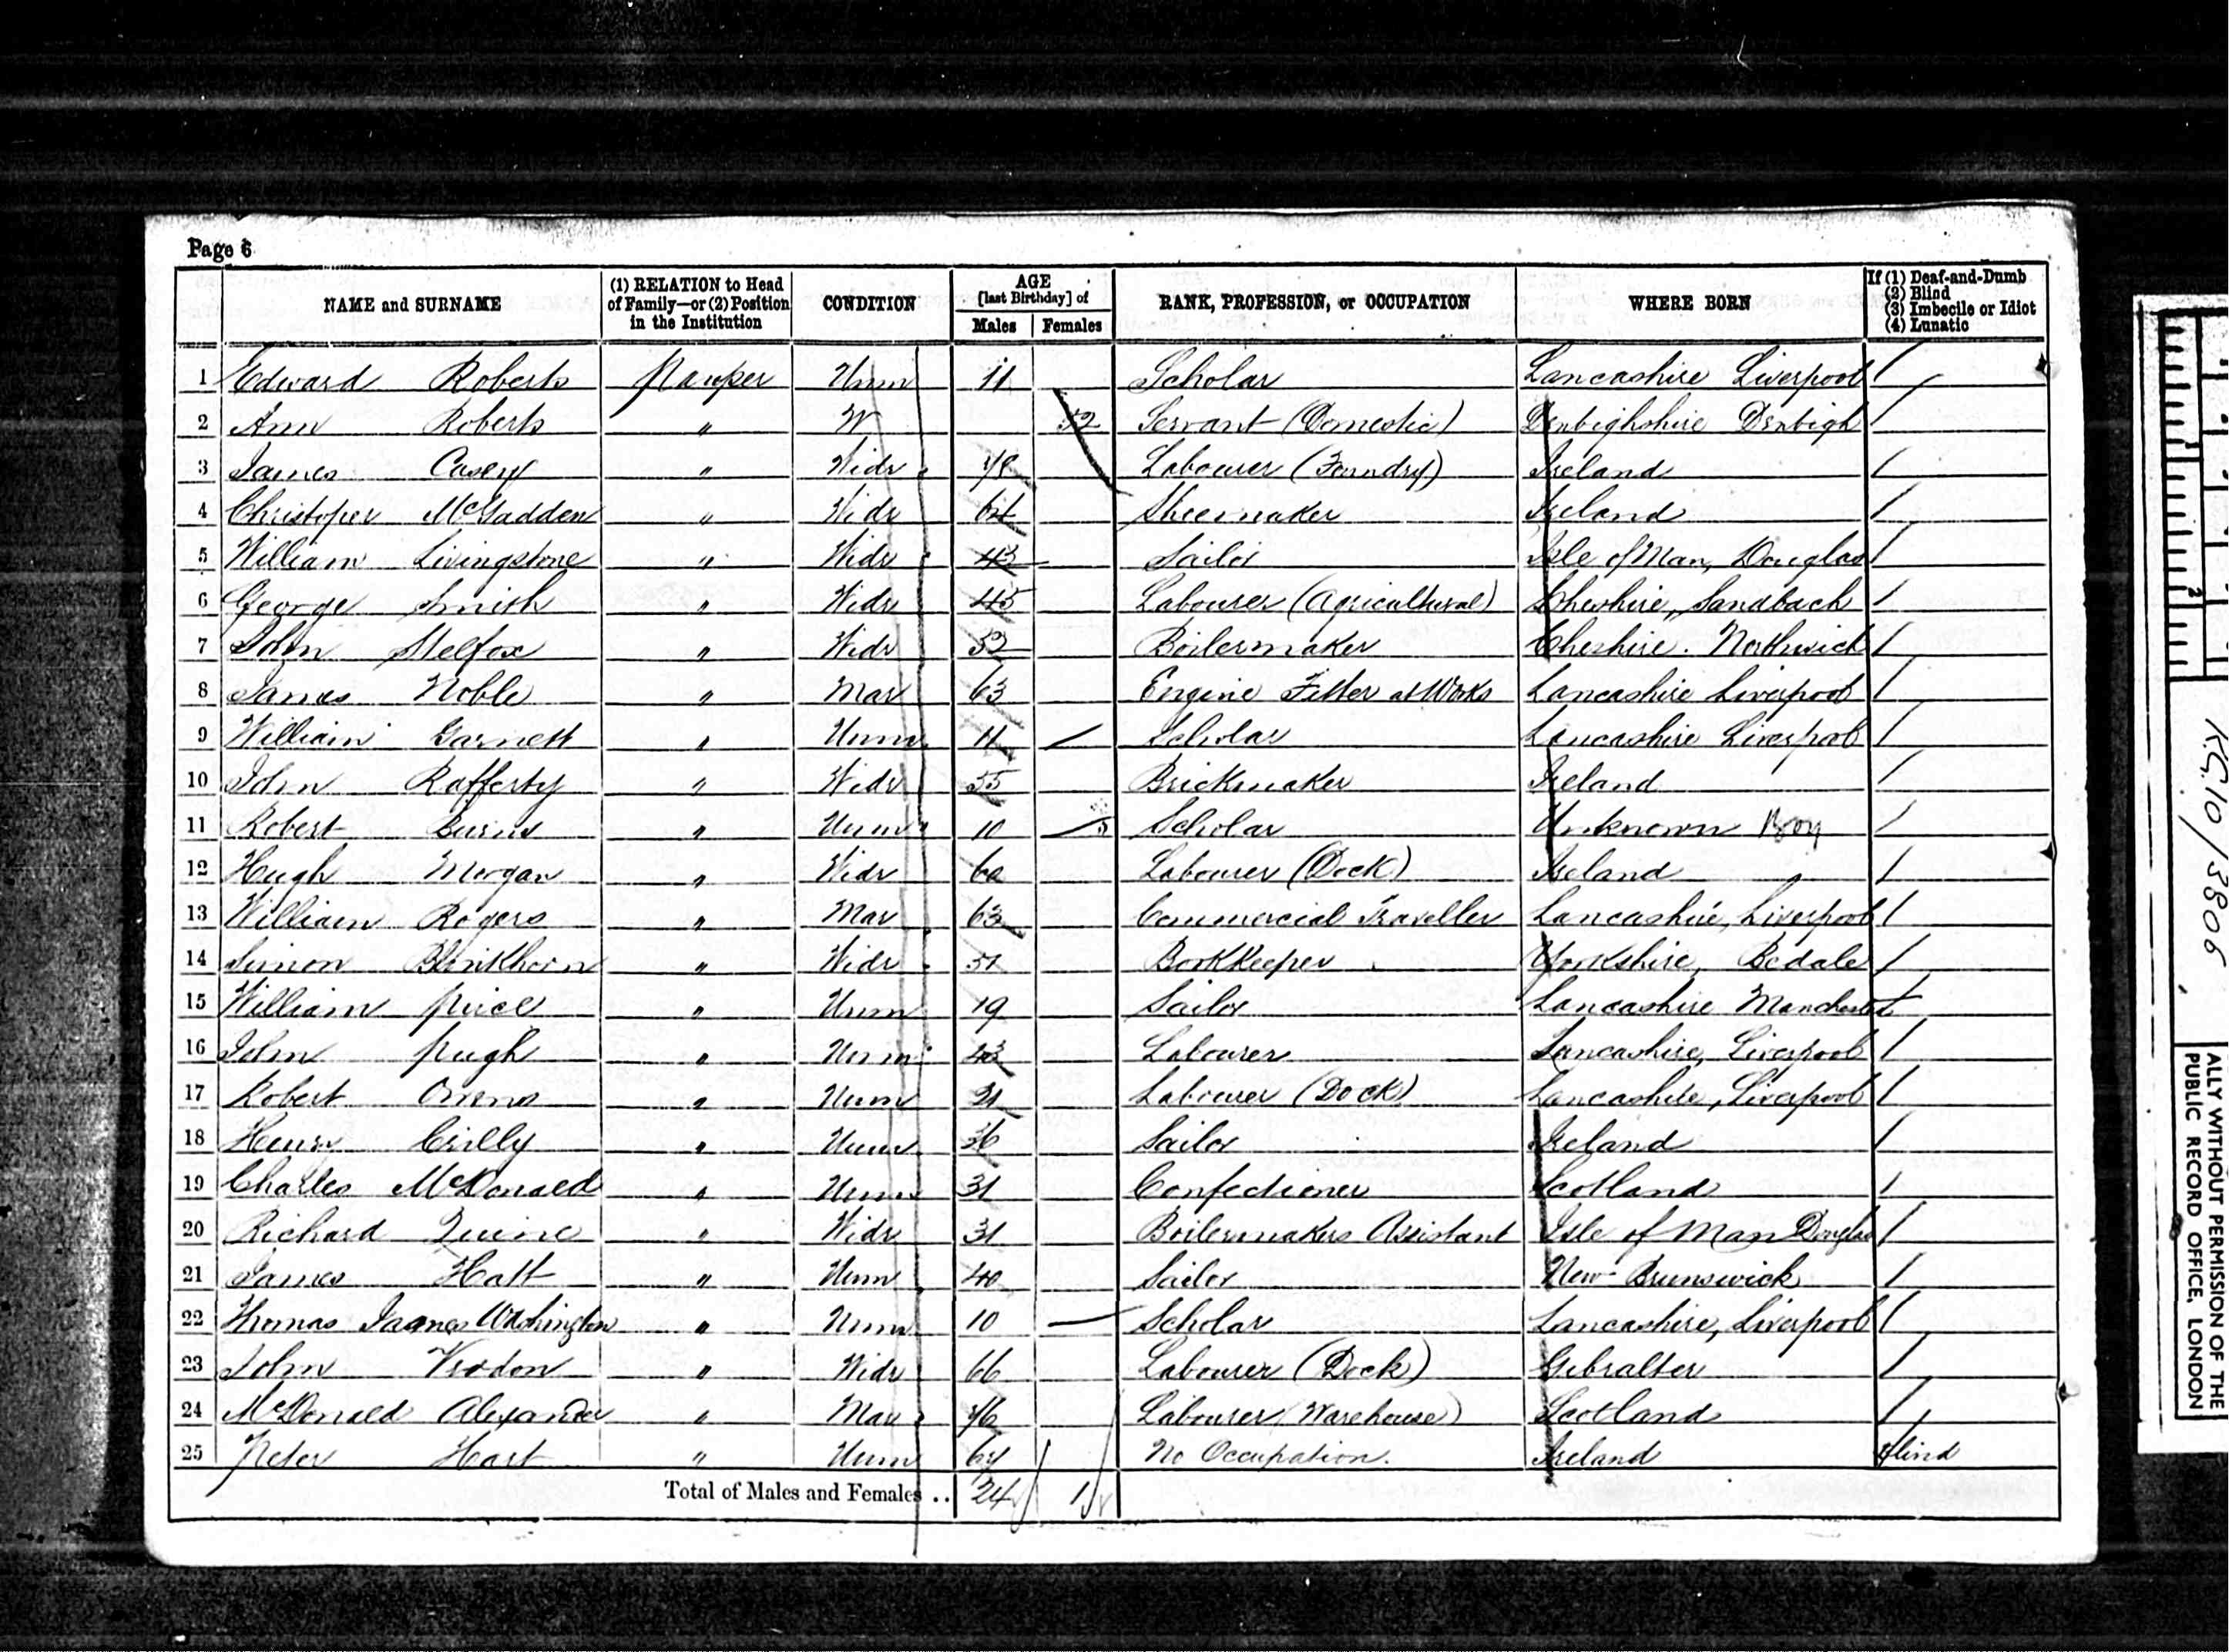 Page 6
NAME and SURNAME (1) RELATION to Head of Family—or (2) Position in the Institution CONDITION AGE [last Birthday] of Males Females RANK, PROFESSION, or OCCUPATION WHERE BORN If (1) Deaf-and-Dumb (2) Blind (3) Imbecile or Idiot (4) Lunatic
1 Edward Roberts Pauper Unm 11 Scholar Lancashire Liverpool
2 Ann Roberts " W 52 Servant (Domestic) Denbighshire Denbigh
3 James Casey " Widr 48 Labourer (Foundry) Ireland
4 Christoper McFadden " Widr 64 Shoemaker Ireland
5 William Livingstone " Widr 43 Sailor Isle of Man, Douglas
6 George Smith " Widr 45 Labourer (Agricultural) Cheshire, Sandbach
7 John Stelfox " Widr 52 Boilermaker Cheshire. Northwich
8 James Noble " Mar 63 Engine Fitter at Works Lancashire Liverpool
9 William Garnett " Unm 11 Scholar Lancashire Liverpool
10 John Rafferty " Widr 55 Brickmaker Ireland
11 Robert Burns " Unm 10 Scholar Unknown
12 Hugh Morgan " Widr 60 Labourer (Dock) Ireland
13 William Rogers " Mar 63 Commercial Traveller Lancashire, Liverpool
14 Simon Blinkhorn " Widr 51 Bookkeeper Yorkshire, Bedale
15 William Price " Unm 19 Sailor Lancashire Manchester
16 John Pugh " Unm 43 Labourer Lancashire, Liverpool
17 Robert Owens " Unm 21 Labourer (Dock) Lancashire, Liverpool
18 Henry Crilly " Unm 36 Sailor Ireland
19 Charles McDonald " Unm 31 Confectioner Scotland
20 Richard Quine " Widr 31 Boilermakers Assistant Isle of Man Douglas
21 James Hatt " Unm 40 Sailor New Brunswick
22 Thomas James Washington " Unm 10 Scholar Lancashire, Liverpool
23 John " Widr 66 Labourer (Dock) Gibralter
24 McDonald Alexander " Mar 46 Labourer (Warehouse) Scotland
25 Peter Hart " Unm 64 No Occupation. Ireland Blind
Total of Males and Females .. 24 1
R.G. 10/3806
ALLY WITHOUT PERMISSION OF THE
PUBLIC RECORD OFFICE, LONDON
2